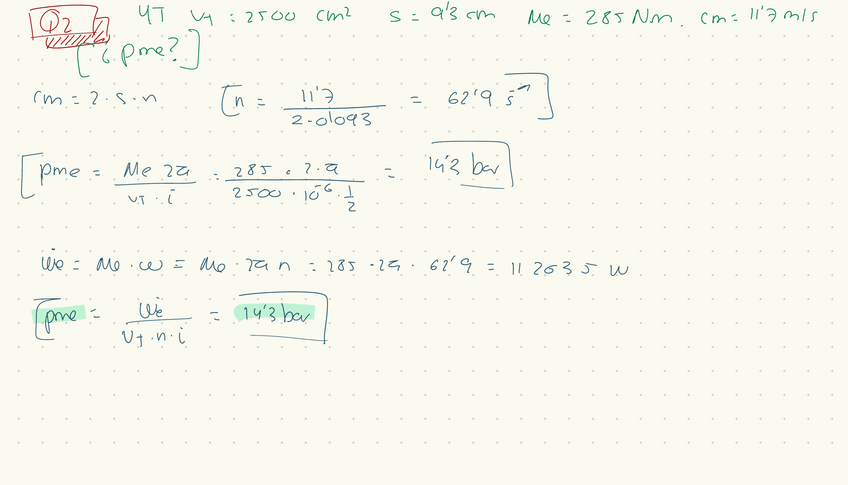 Q2 4T V_T = 2500 cm² s = 9'3 cm Me = 285 Nm. cm = 11'7 m/s
[¿ pme?]
cm = 2·s·n [n = 11'7 / 2·0'093 = 62'9 s⁻¹]
[pme = Me 2π / V_T · i = 285 · 2·π / 2500 · 10⁻⁶ · 1/2 = 14'3 bar]
Ẇe = Me · ω = Me · 2π n = 285 · 2π · 62'9 = 112635 W
[pme = Ẇe / V_T · n · i = 14'3 bar]